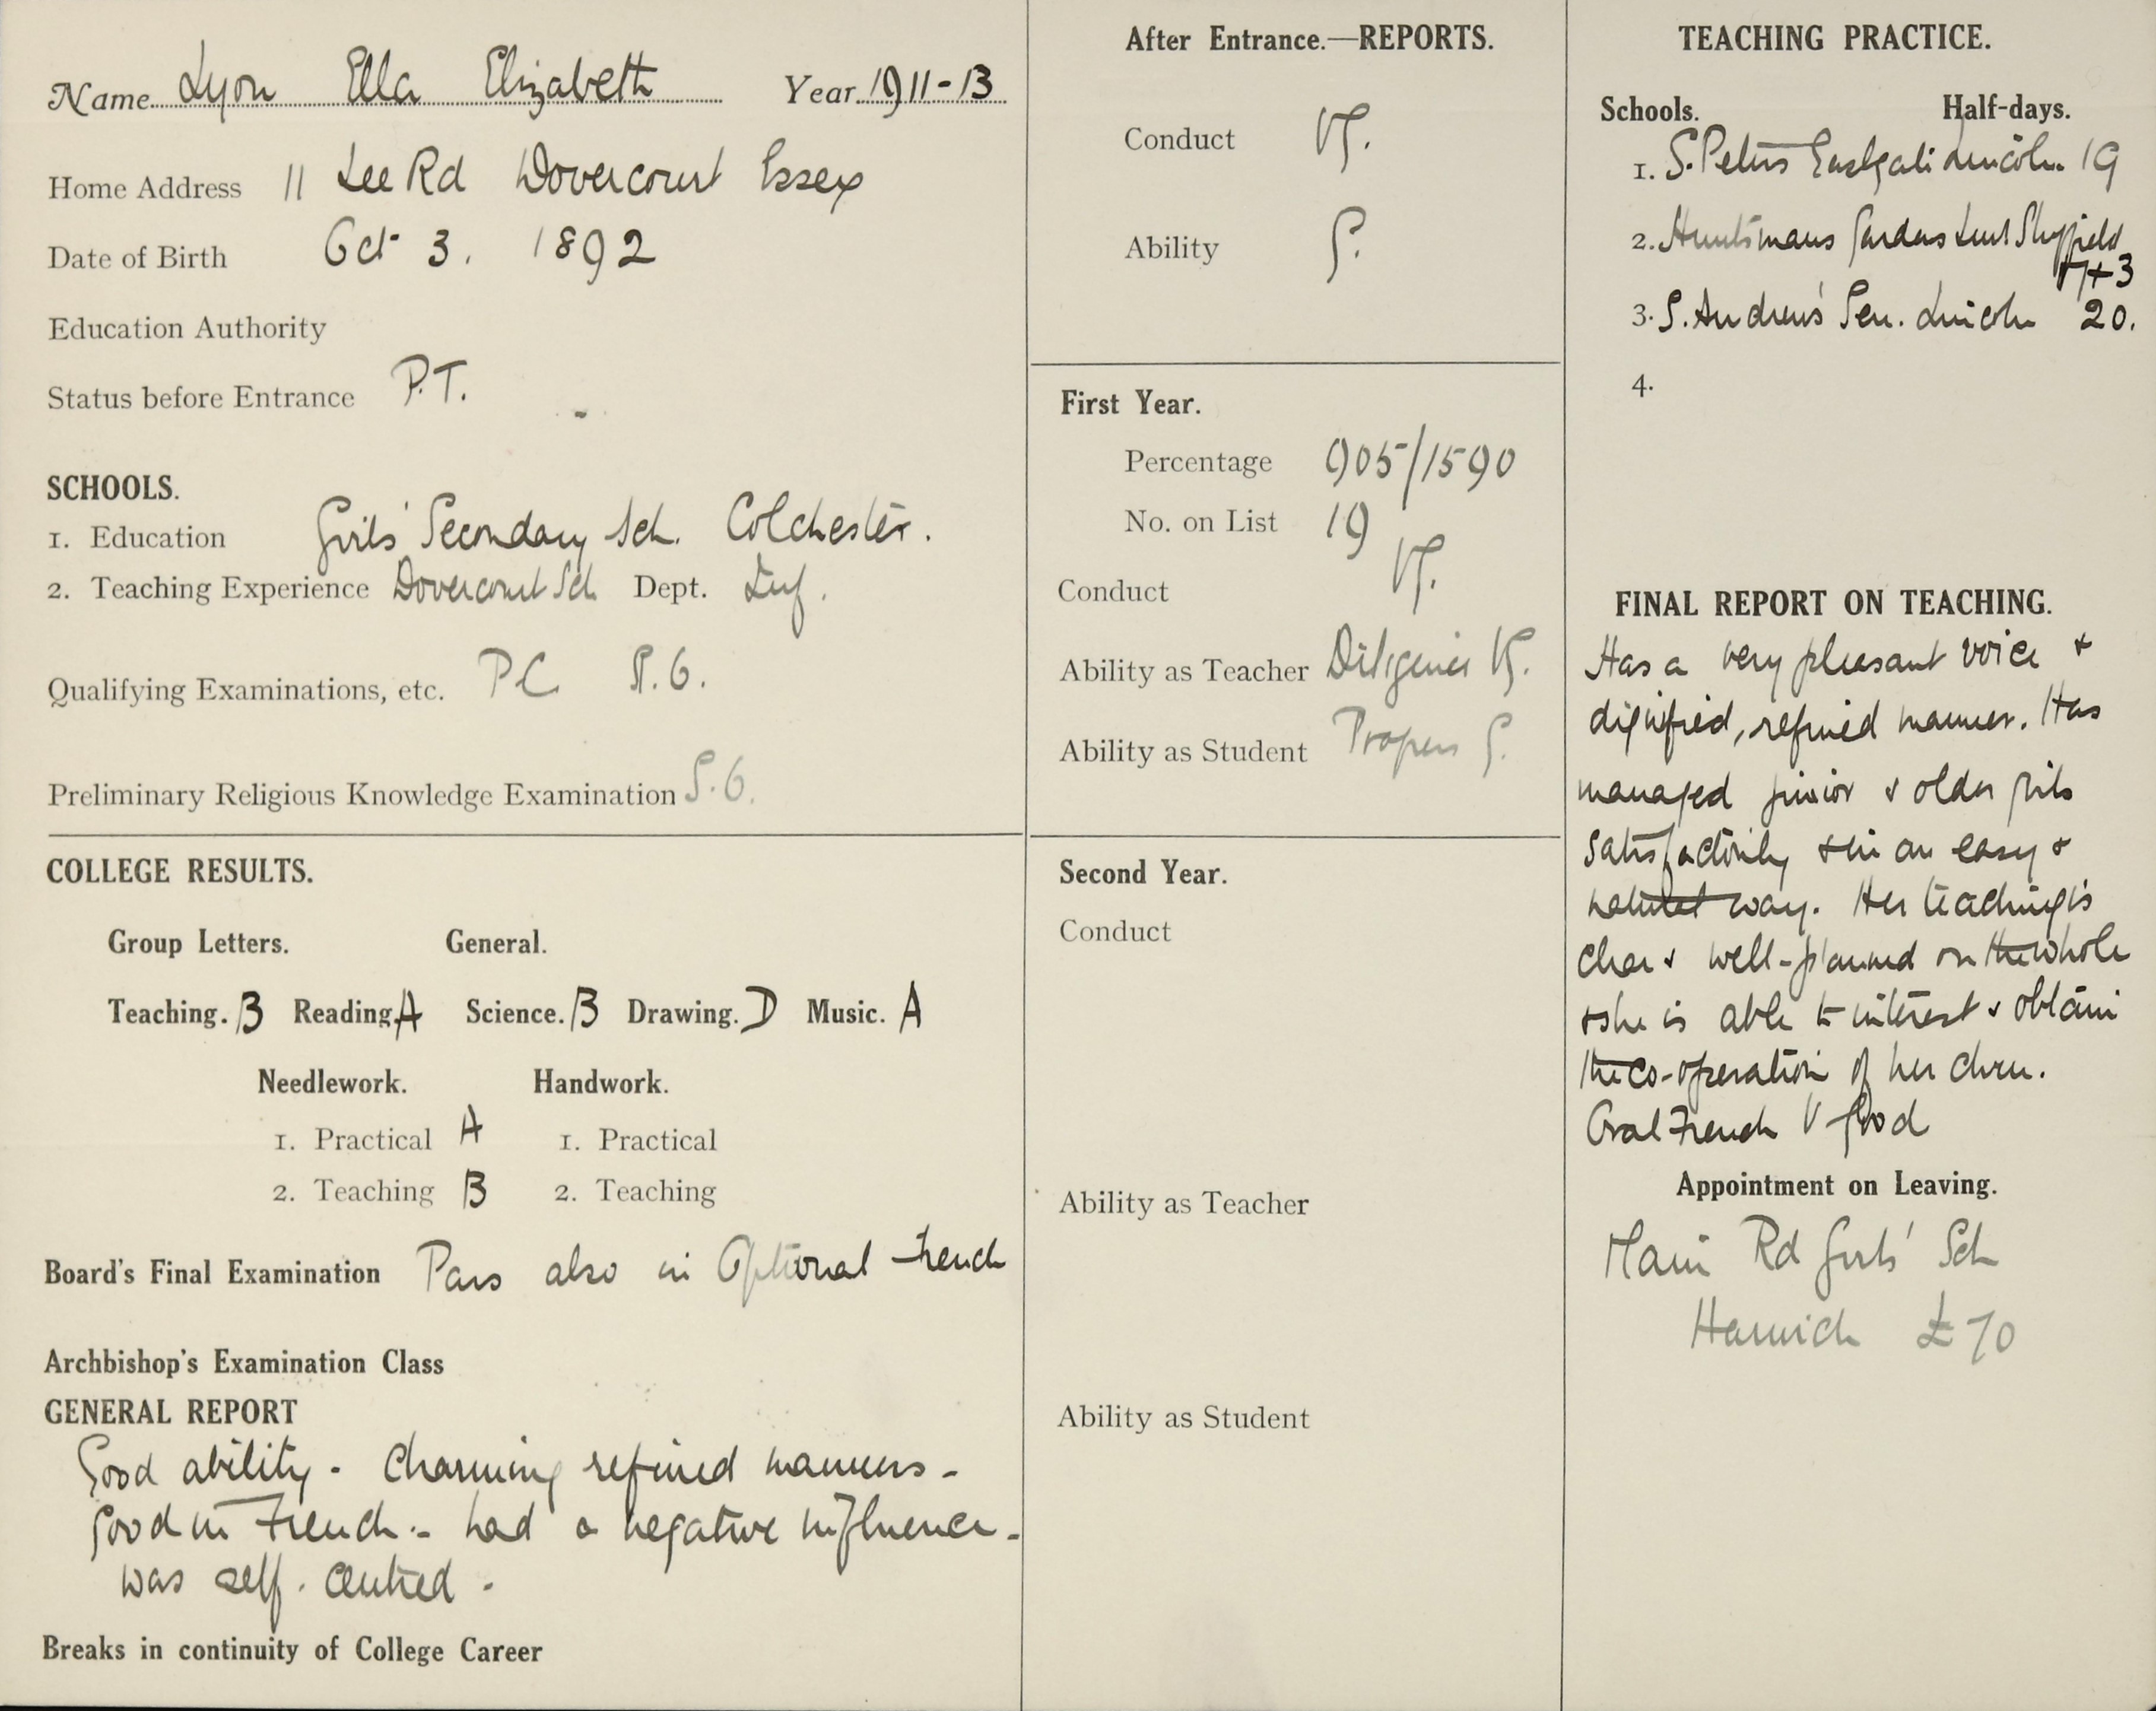 Name Lyon Ella Elizabeth Year 1911-13
Home Address 11 Lee Rd Dovercourt Essex
Date of Birth Oct 3. 1892
Education Authority
Status before Entrance P.T.
SCHOOLS.
1. Education Girls' Secondary Sch. Colchester.
2. Teaching Experience Dovercourt Sch. Dept. Inf.
Qualifying Examinations, etc. PC
Preliminary Religious Knowledge Examination
COLLEGE RESULTS.
Group Letters. General.
Teaching. B Reading A Science. B Drawing. D Music. A
Needlework. Handwork.
1. Practical A 1. Practical
2. Teaching B 2. Teaching
Board's Final Examination Pass also in Optional French
Archbishop's Examination Class
GENERAL REPORT
Good ability - Charming refined manners -
Good in French - had a negative influence -
was self. centred -
Breaks in continuity of College Career
After Entrance.—REPORTS.
Conduct VG.
Ability G.
First Year.
Percentage 905/1590
No. on List 19
Conduct VG.
Ability as Teacher Diligence VG.
Ability as Student Progress G.
Second Year.
Conduct
Ability as Teacher
Ability as Student
TEACHING PRACTICE.
Schools. Half-days.
1. S. Peters Eastgate Lincoln. 19
2. Huntsmans Gardens Sheffield
+3
3. S. Andrew's Sen. Lincoln 20.
4.
FINAL REPORT ON TEACHING.
Has a very pleasant voice &
dignified, refined manner. Has
managed junior & older girls
satisfactorily & in an easy &
natural way. Her teaching is
clear & well-planned on the whole
& she is able to interest & obtain
the co-operation of her chren.
Oral French V good
Appointment on Leaving.
Main Rd Girls' Sch
Harwich £70